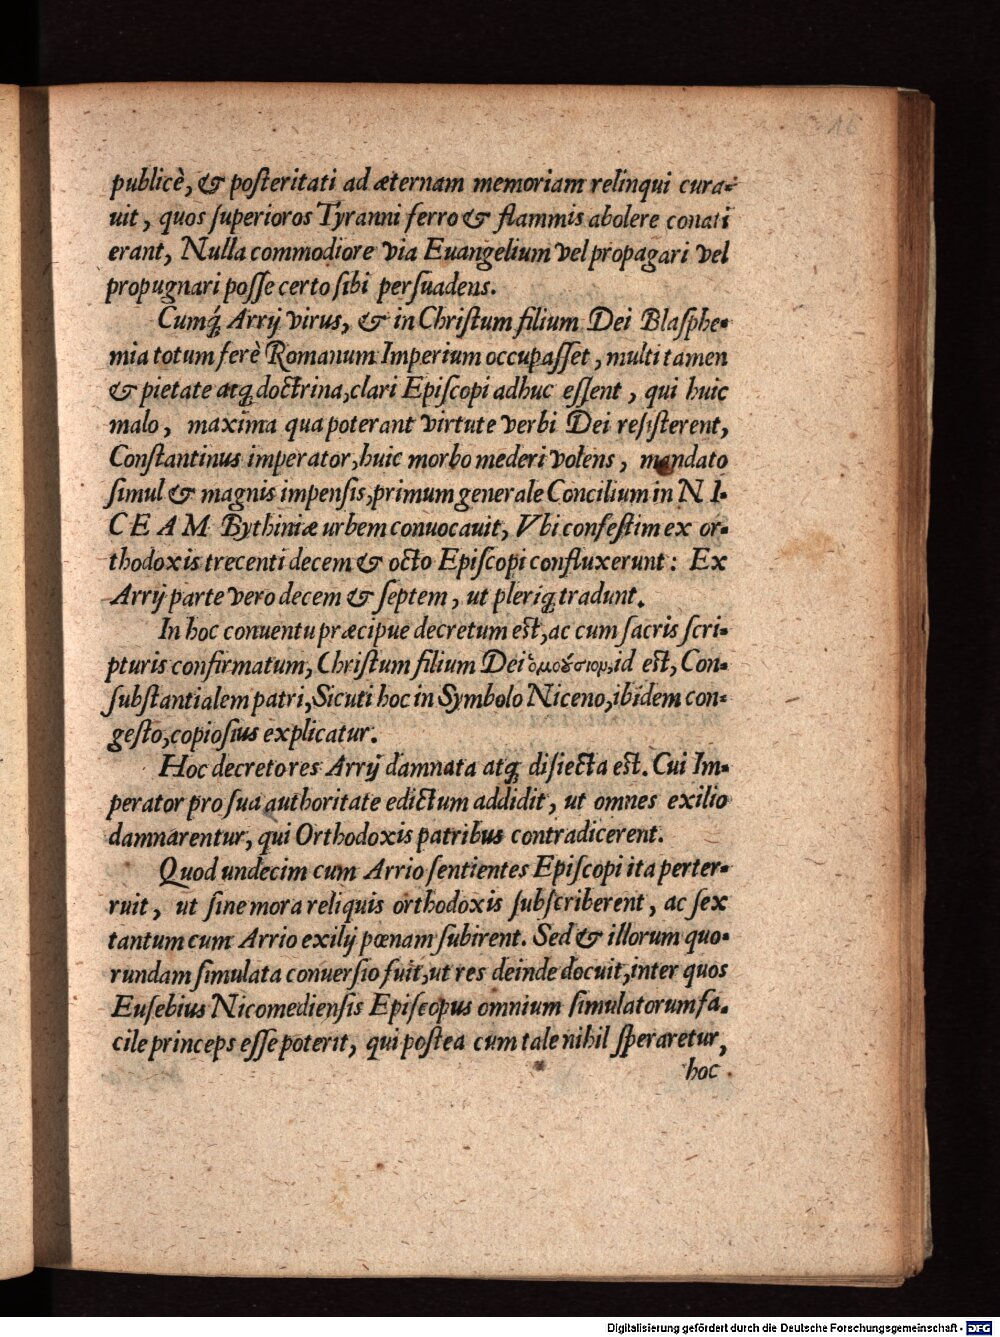 publicè, & posteritati ad æternam memoriam relinqui cura-
uit, quos superioros Tyranni ferro & flammis abolere conati
erant, Nulla commodiore via Euangelium vel propagari vel
propugnari posse certo sibi persuadens.
Cumq́; Arrij virus, & in Christum filium Dei Blasphe-
mia totum ferè Romanum Imperium occupasset, multi tamen
& pietate atq; doctrina, clari Episcopi adhuc essent, qui huic
malo, maxima qua poterant virtute verbi Dei resisterent,
Constantinus imperator, huic morbo mederi volens, mandato
simul & magnis impensis, primum generale Concilium in N I-
C E A M Bythiniæ urbem conuocauit, Vbi confestim ex or-
thodoxis trecenti decem & octo Episcopi confluxerunt: Ex
Arrij parte vero decem & septem, ut pleriq; tradunt.
In hoc conuentu præcipue decretum est, ac cum sacris scri-
pturis confirmatum, Christum filium Dei ὁμούσιον, id est, Con-
substantialem patri, Sicuti hoc in Symbolo Niceno, ibidem con-
gesto, copiosius explicatur.
Hoc decreto res Arrij damnata atq; disiecta est. Cui Im-
perator pro sua authoritate edictum addidit, ut omnes exilio
damnarentur, qui Orthodoxis patribus contradicerent.
Quod undecim cum Arrio sentientes Episcopi ita perter-
ruit, ut sine mora reliquis orthodoxis subscriberent, ac sex
tantum cum Arrio exilij pœnam subirent. Sed & illorum quo-
rundam simulata conuersio fuit, ut res deinde docuit, inter quos
Eusebius Nicomediensis Episcopus omnium simulatorum fa-
cile princeps esse poterit, qui postea cum tale nihil speraretur,
hoc
Digitalisierung gefördert durch die Deutsche Forschungsgemeinschaft - DFG